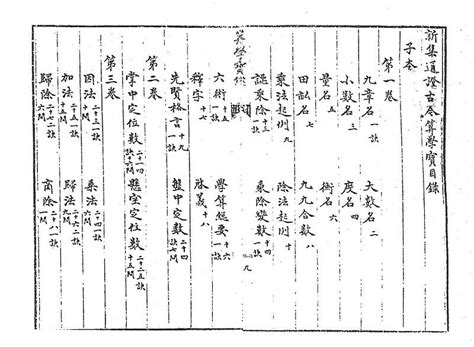 新集通證古今算學寶鑑目錄
子本
第一卷
九章名 一訣 大數名 二
小數名 三 度名 四
量名 五 衡名 六
田畝名 七 九九合數 八
乘法起例 九 除法起例 十
誕乘除 十三 一訣 乘除變數 十四 一訣
算學寶鑑
九
六術 十五 一訣 學算經要 十六 一訣
釋字 十七 啓義 十八
先賢格言 十九 盤中定位數 二十 四訣 七問
第二卷
掌中定位數 二十一 四訣 十六問 懸空定位數 二十二 五訣 十五問
第三卷
因法 二十三 一訣 六問 乘法 二十四 一訣 六問
加法 二十五 一訣 十五問 歸法 二十六 二訣 九問
歸除 二十七 二訣 六問 商除 二十八 一訣 一問